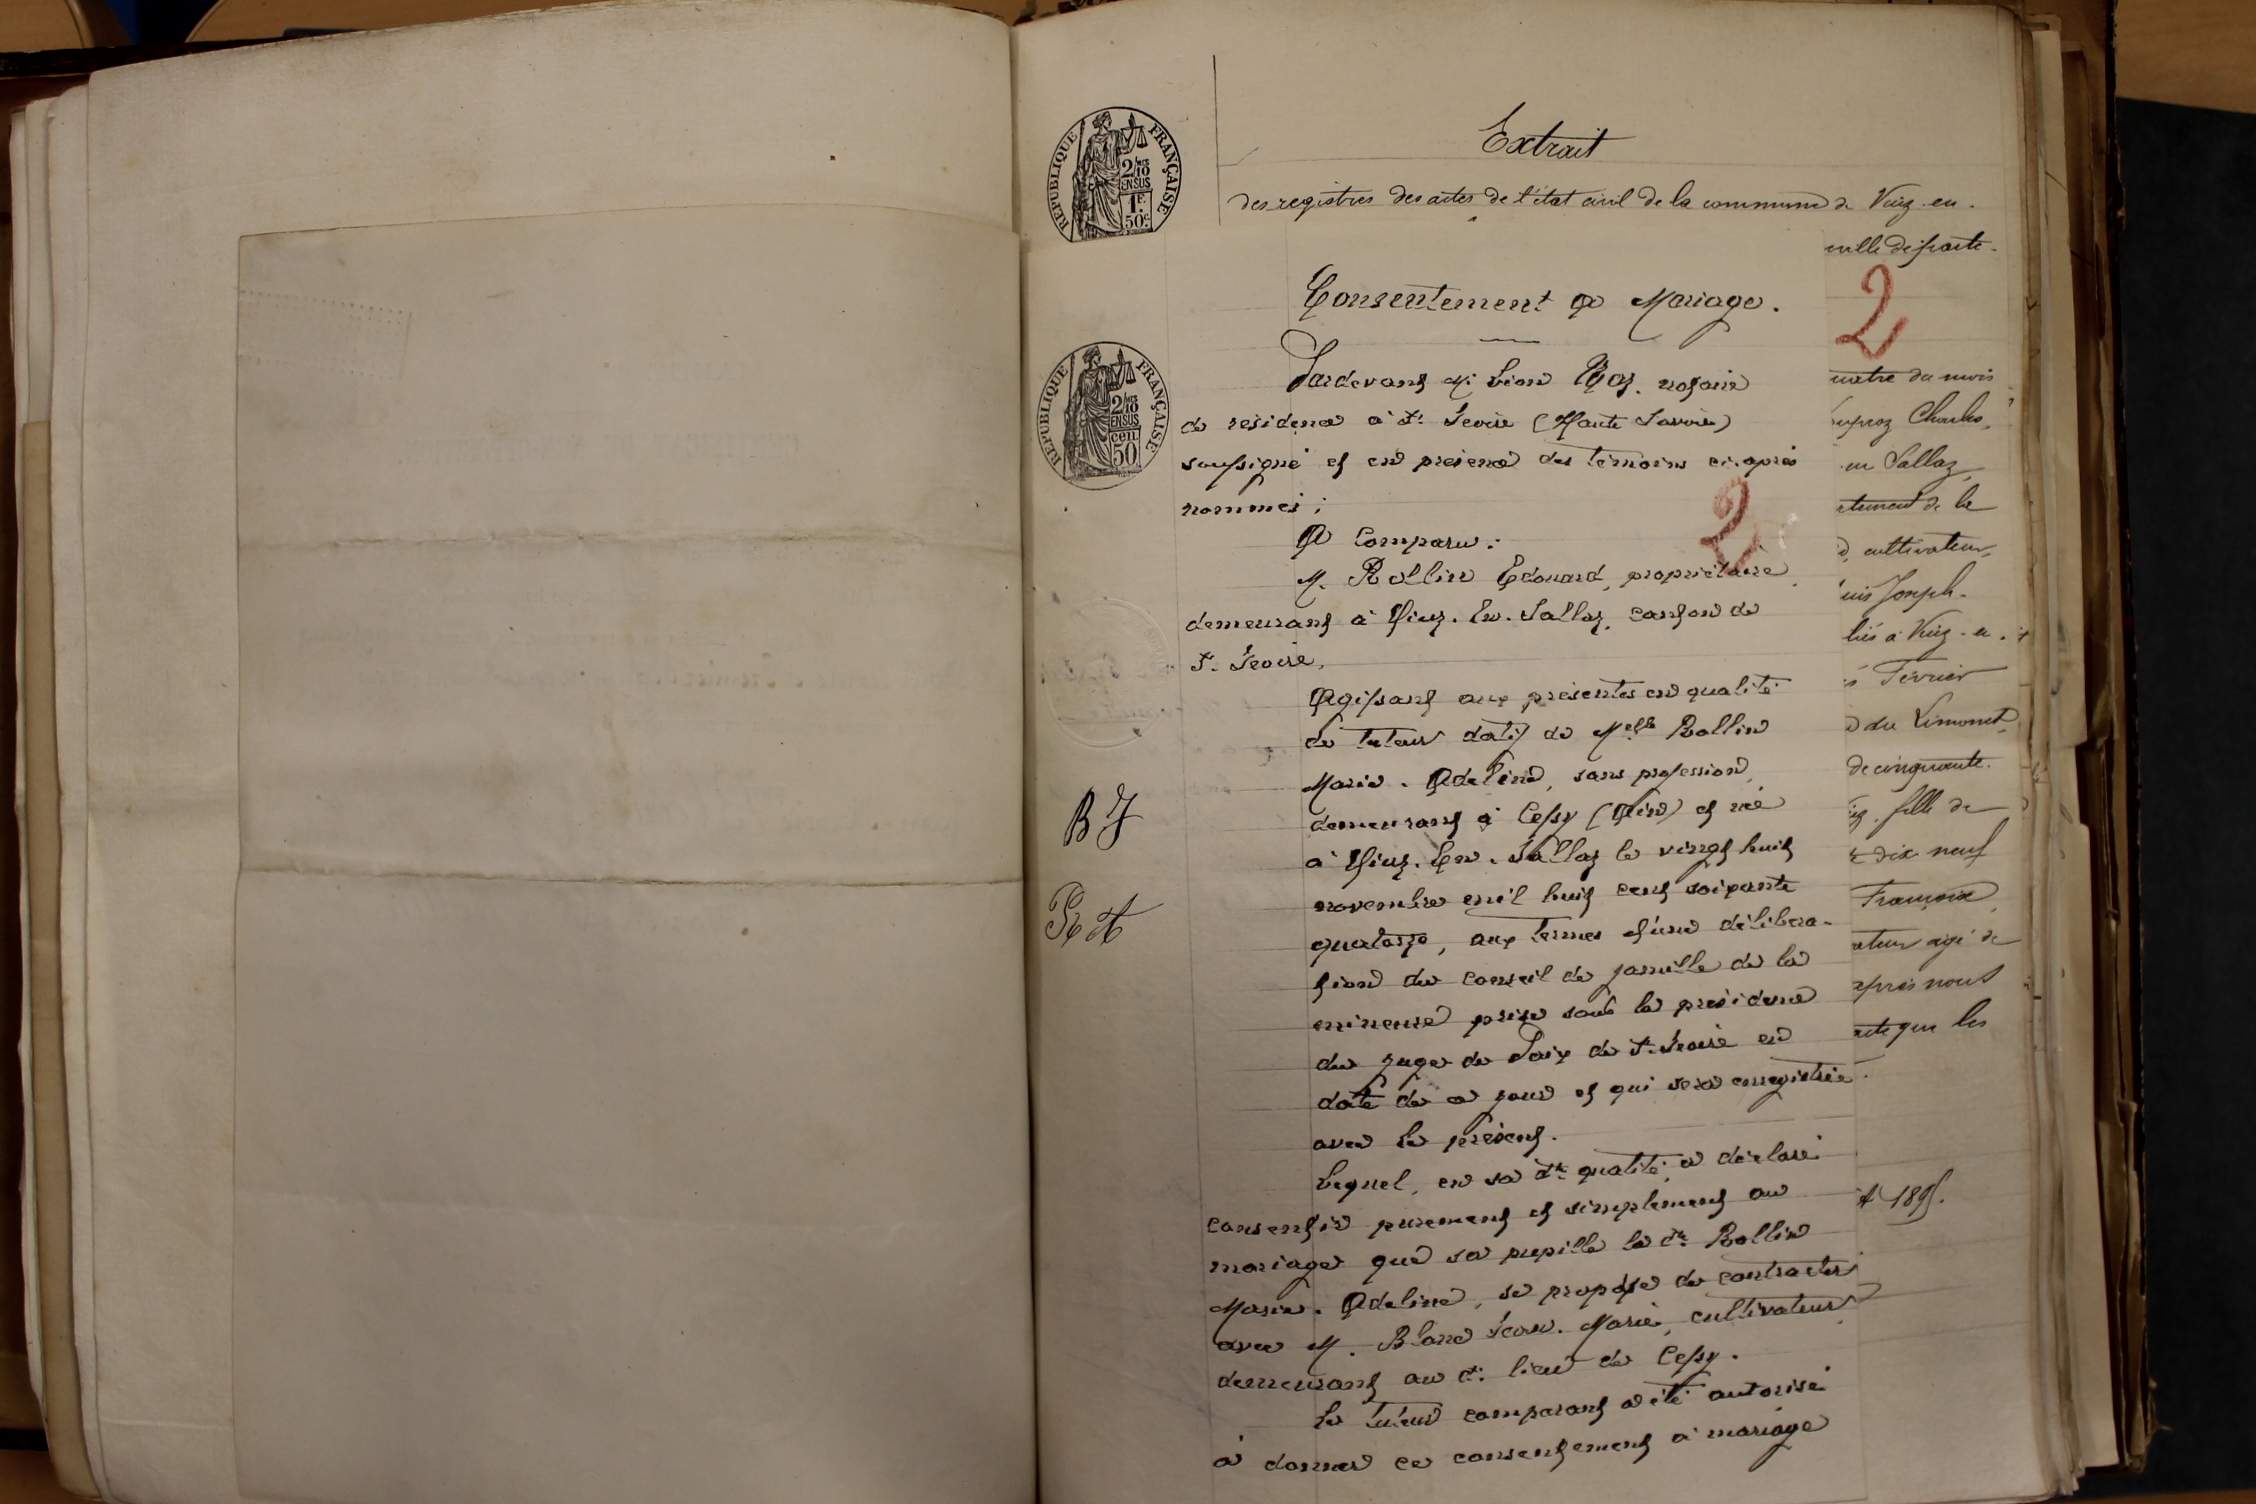 Extrait
des registres des actes de l'état civil de la commune de Viuz-en-
RÉPUBLIQUE FRANÇAISE
2/10
EN SUS
1F.
50c.
Consentement à Mariage.
Pardevant Me Léon notaire
de résidence à St Jeoire (Haute Savoie)
soussigné et en présence des témoins ci-après
nommés ;
A Comparu :
M. Rollin Edouard, propriétaire,
demeurant à Viuz-En-Sallaz, canton de
St Jeoire,
Agissant aux présentes en qualité
de tuteur datif de Melle Rollin
Marie-Adeline, sans profession,
demeurant à Cessy (Ain) et née
à Viuz-En-Sallaz le vingt huit
novembre mil huit cent soixante
quatorze, aux termes d'une délibéra-
tion du conseil de famille de la
mineure prise sous la présidence
du juge de Paix de St Jeoire en
date de ce jour et qui sera enregistrée
avec le présent.
Lequel, en sa dte qualité, a déclaré
consentir purement et simplement au
mariage que sa pupille la dte Rollin
Marie-Adeline, se propose de contracter
avec M. Blanc Jean-Marie, cultivateur,
demeurant au dt lieu de Cessy.
Le tuteur comparant a été autorisé
à donner ce consentement à mariage
RÉPUBLIQUE FRANÇAISE
2/10
EN SUS
cen
50
BJ
2
2
mille départe-
du mois
Charles,
en Sallaz,
de la
cultivateur,
Joseph-
à Viuz-en-
Février
du Limonet,
de cinquante-
fille de
dix neuf
Françoise,
âgé de
après nous
que les